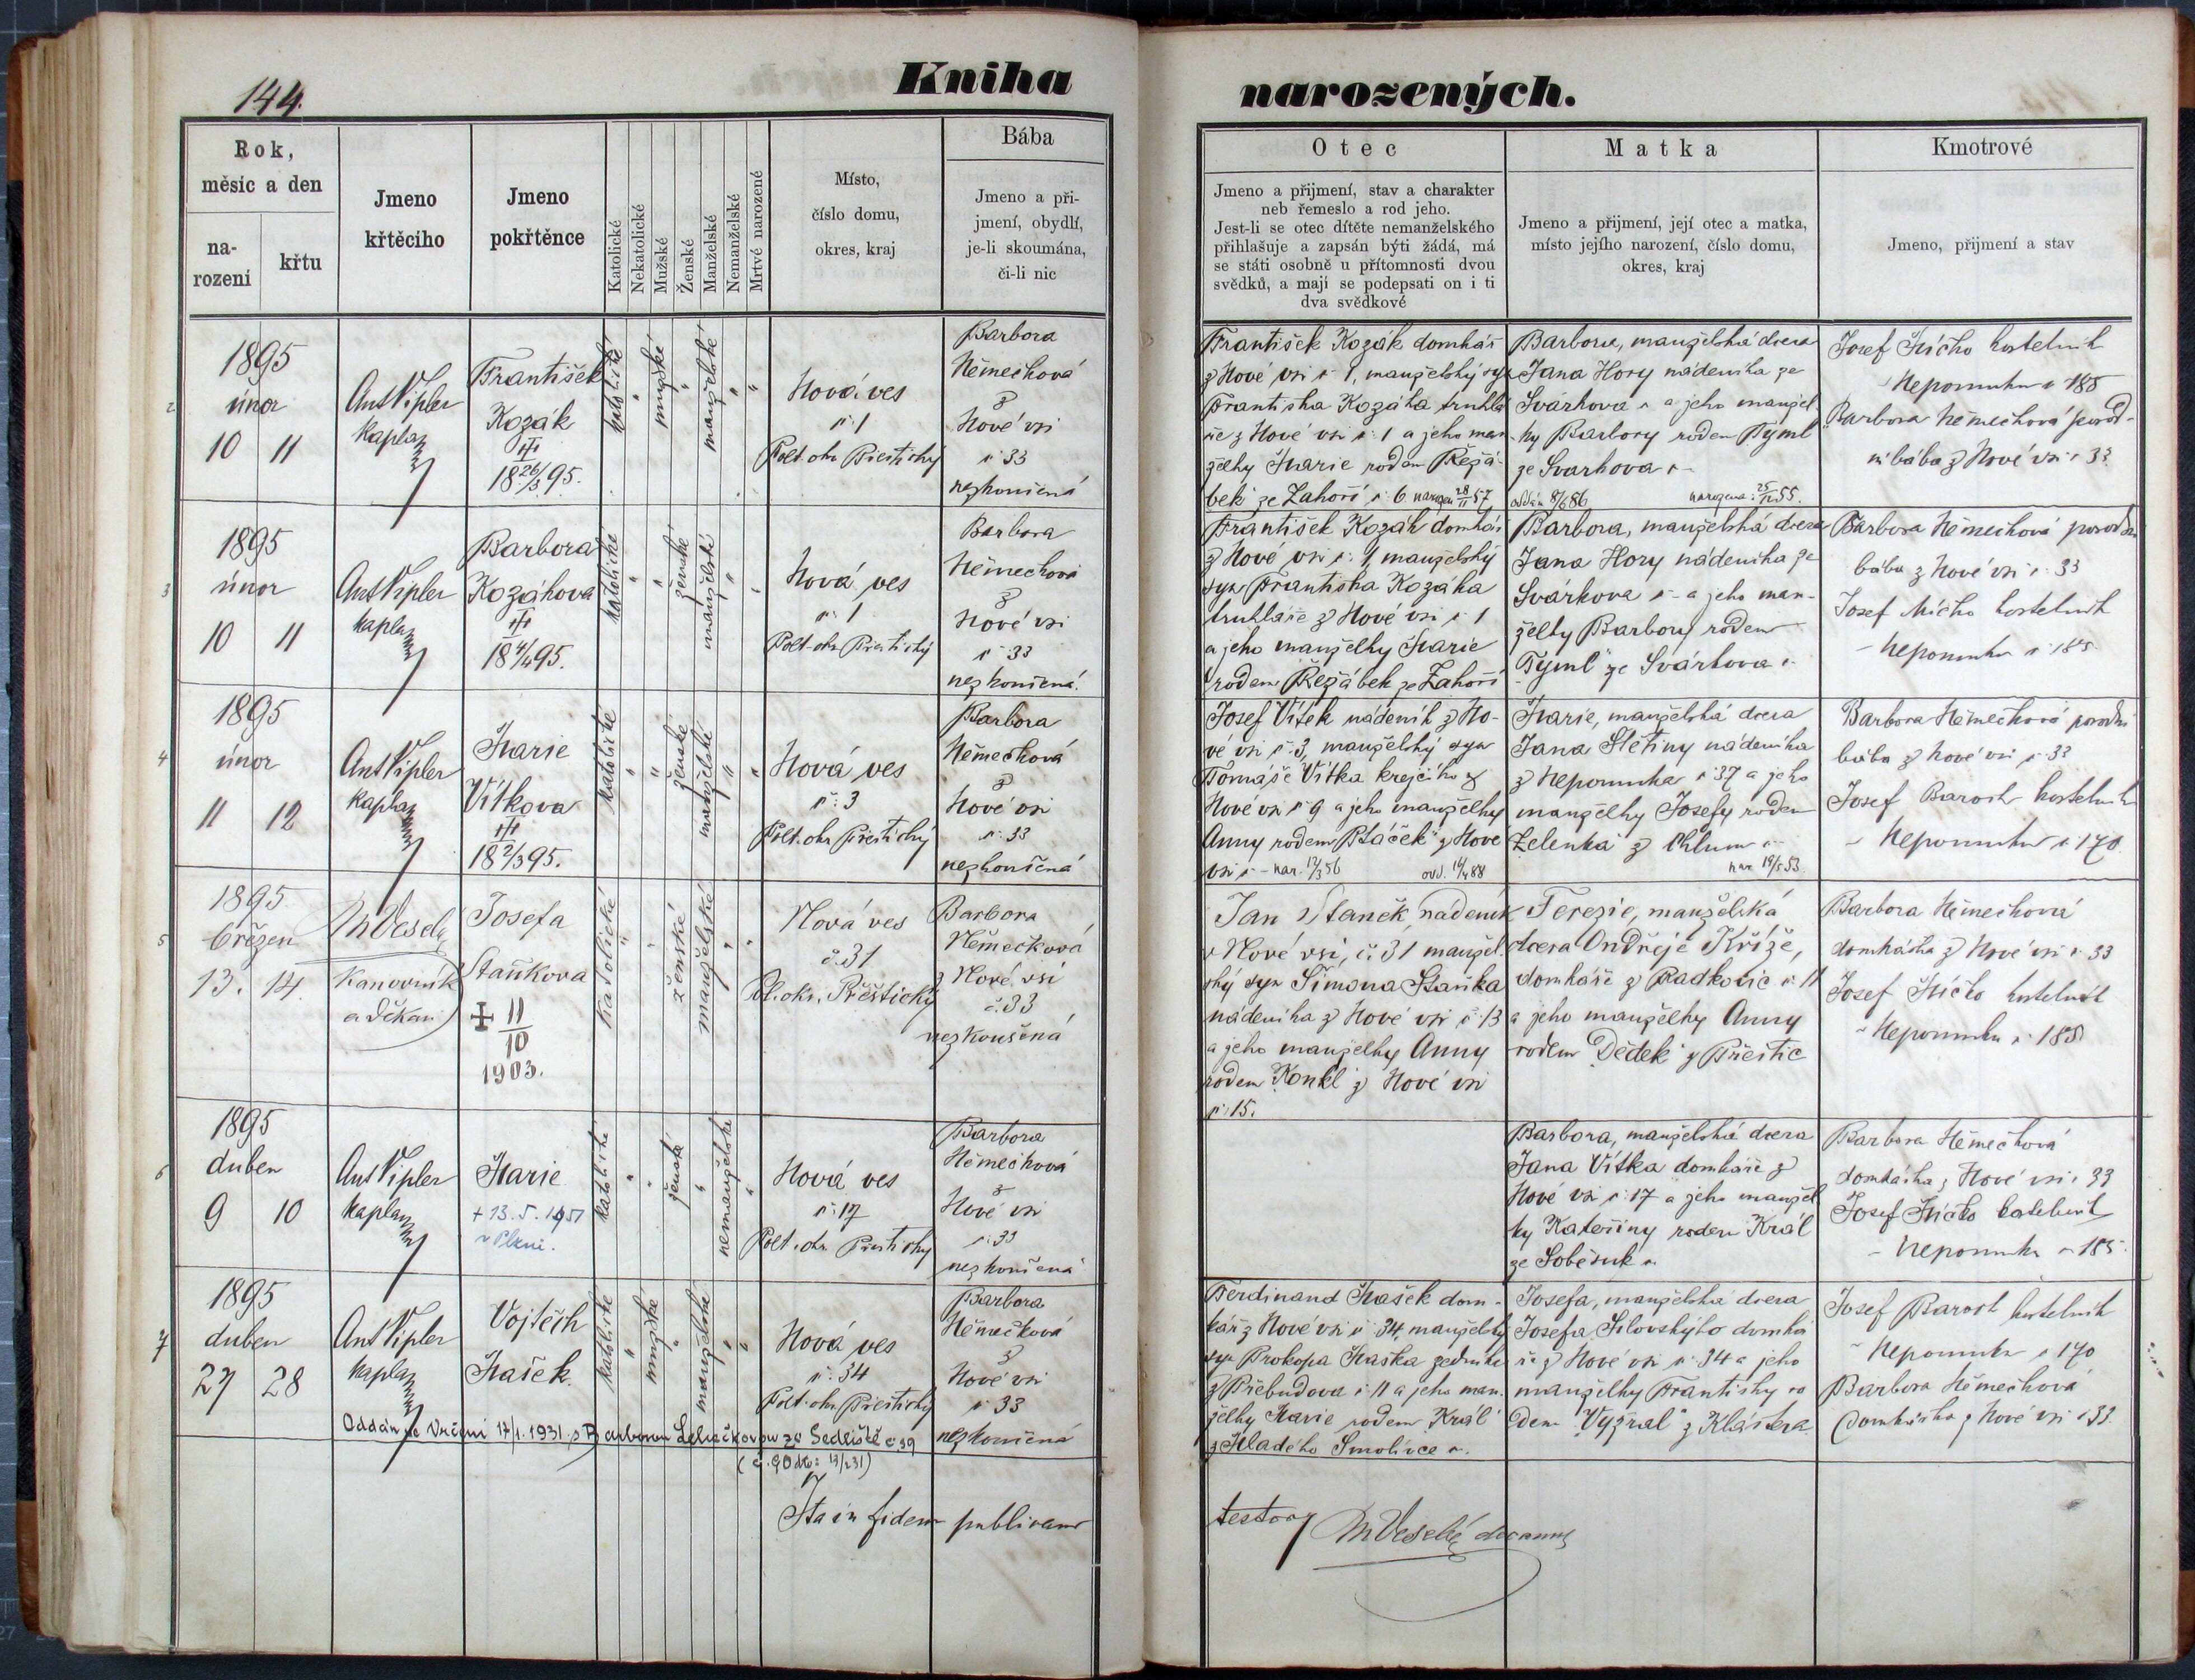 144.
Kniha
narozených.
Rok,
měsíc a den
na-
rození
křtu
Jmeno
křtěcího
Jmeno
pokřtěnce
Katolické
Nekatolické
Mužské
Ženské
Manželské
Nemanželské
Mrtvé narozené
Místo,
číslo domu,
okres, kraj
Bába
Jmeno a při-
jmení, obydlí,
je-li skoumána,
či-li nic
Otec
Jmeno a přijmení, stav a charakter
neb řemeslo a rod jeho.
Jest-li se otec dítěte nemanželského
přihlašuje a zapsán býti žádá, má
se státi osobně u přítomnosti dvou
svědků, a mají se podepsati on i ti
dva svědkové
Matka
Jmeno a přijmení, její otec a matka,
místo jejího narození, číslo domu,
okres, kraj
Kmotrové
Jmeno, přijmení a stav
2
1895
únor
10 11
Ant Vipler
kaplan
František
Kozák
18 26/3 95.
katolické
"
mužské
"
manželské
"
"
Nová ves
č. 1
Polt. okr. Přestický
Barbora
Němečková
z
Nové vsi
č. 33
nezkoušená
František Kozák domkář
z Nové vsi č. 1, manželský syn
Františka Kozáka truhlá-
ře z Nové vsi č. 1 a jeho man-
želky Marie rodem "Řežá-
bek" ze Zahoří č. 6 narozen 28/11 57
Barbora, manželská dcera
Jana Hory nádeníka ze
Svárkova č. a jeho manžel-
ky Barbory rodem "Tyml"
ze Svarkova č. -
oddán 8/6 86 narozena: 25/12 55.
Josef Míčko kostelník
v Nepomuku č 185
Barbora Němečková porod-
ní bába z Nové vsi č 33
3
1895
únor
10 11
Ant Vipler
kaplan
Barbora
Kozákova
18 4/4 95.
katolické
"
"
ženské
manželské
"
"
Nová ves
č. 1
Polt. okr. Přestický
Barbora
Němečková
z
Nové vsi
č. 33
nezkoušená.
František Kozák domkář
z Nové vsi č. 1, manželský
syn Františka Kozáka
truhláře z Nové vsi č. 1
a jeho manželky Marie
rodem "Řežábek" ze Zahoří
Barbora, manželská dcera
Jana Hory nádeníka ze
Svárkova č - a jeho man-
želky Barbory rodem
"Tyml" ze Svárkova č.
Barbora Němečková porodní
bába z Nové vsi č. 33
Josef Míčko kostelník
v Nepomuku č 185
4
1895
únor
11 12
Ant Vipler
kaplan
Marie
Vítkova
18 2/3 95.
katolické
"
"
ženské
manželské
"
"
Nová ves
č. 3
Polt. okr. Přestický
Barbora
Němečková
z
Nové vsi
č. 33
nezkoušená
Josef Vítek nádeník z No-
vé vsi č. 3, manželský syn
Tomáše Vítka krejčího z
Nové vsi č. 9 a jeho manželky
Anny rodem "Ptáček" z Nové
vsi č. - nar. 13/3 56 odd. 14/4 88
Marie, manželská dcera
Jana Štětiny nádeníka
z Nepomuka č. 37 a jeho
manželky Josefy rodem
"Zelenka" z Chlum č. -
nar. 19/5 53.
Barbora Němečková porodní
bába z Nové vsi č. 33
Josef Barosh kostelník
v Nepomuku č. 170
5
1895
březen
13. 14.
M Veselý
Kanovník
a děkan
Josefa
Staňkova
11/10
1903.
Katolické
"
"
ženské
manželské
"
"
Nová ves
č. 31
Pol. okr. Přeštický
Barbora
Němečková
z Nové vsi
č. 33
nezkoušená
Jan Staněk nádeník
z Nové vsi, č. 31 manžel-
ský syn Šimona Staňka
nádeníka z Nové vsi č. 13
a jeho manželky Anny
rodem "Konkl" z Nové vsi
č. 15.
Terezie, manželská
dcera Ondřeje Kříže,
domkáře z Radkovic č. 11
a jeho manželky Anny
rodem "Dědek" z Přeštic
Barbora Němečková
domkářka z Nové vsi č. 33
Josef Míčko kostelník
v Nepomuku č. 185
6
1895
duben
9 10
Ant Vipler
kaplan
Marie
+ 13. 5. 1951
v Plzni.
katolické
"
"
ženské
"
nemanželské
"
Nová ves
č. 17
Polt. okr. Přestický
Barbora
Němečková
z
Nové vsi
č. 33
nezkoušená
Barbora, manželská dcera
Jana Vítka domkáře z
Nové vsi č. 17 a jeho manžel-
ky Kateřiny rodem "Král"
ze Soběsuk č.
Barbora Němečková
domkářka z Nové vsi č 33
Josef Míčko kostelník
v Nepomuku č 185.
7
1895
duben
27 28
Ant Vipler
kaplan
Vojtěch
Mašek.
katolické
"
mužské
"
manželské
"
"
Nová ves
č. 34
Polt. okr. Přestický
Barbora
Němečková
z
Nové vsi
č. 33
nezkoušená
Oddán ve Vrčeni 17/1. 1931. s Barborou ze Sedliště č 39
Ferdinand Mašek dom-
kář z Nové vsi č. 34, manželský
syn Prokopa Maška zedníka
z Přebudova č. 11 a jeho man-
želky Marie rodem "Král"
z Mladého Smolivce č.
Josefa, manželská dcera
Josefa Silovského domká-
ře z Nové vsi č. 34 a jeho
manželky Františky ro-
dem "Vyžral" z Kláštera
Josef Barosh kostelník
v Nepomuku č 170
Barbora Němečková
domkářka z Nové vsi č 33.
Ita in fidem publicam
testor M Veselý decanus